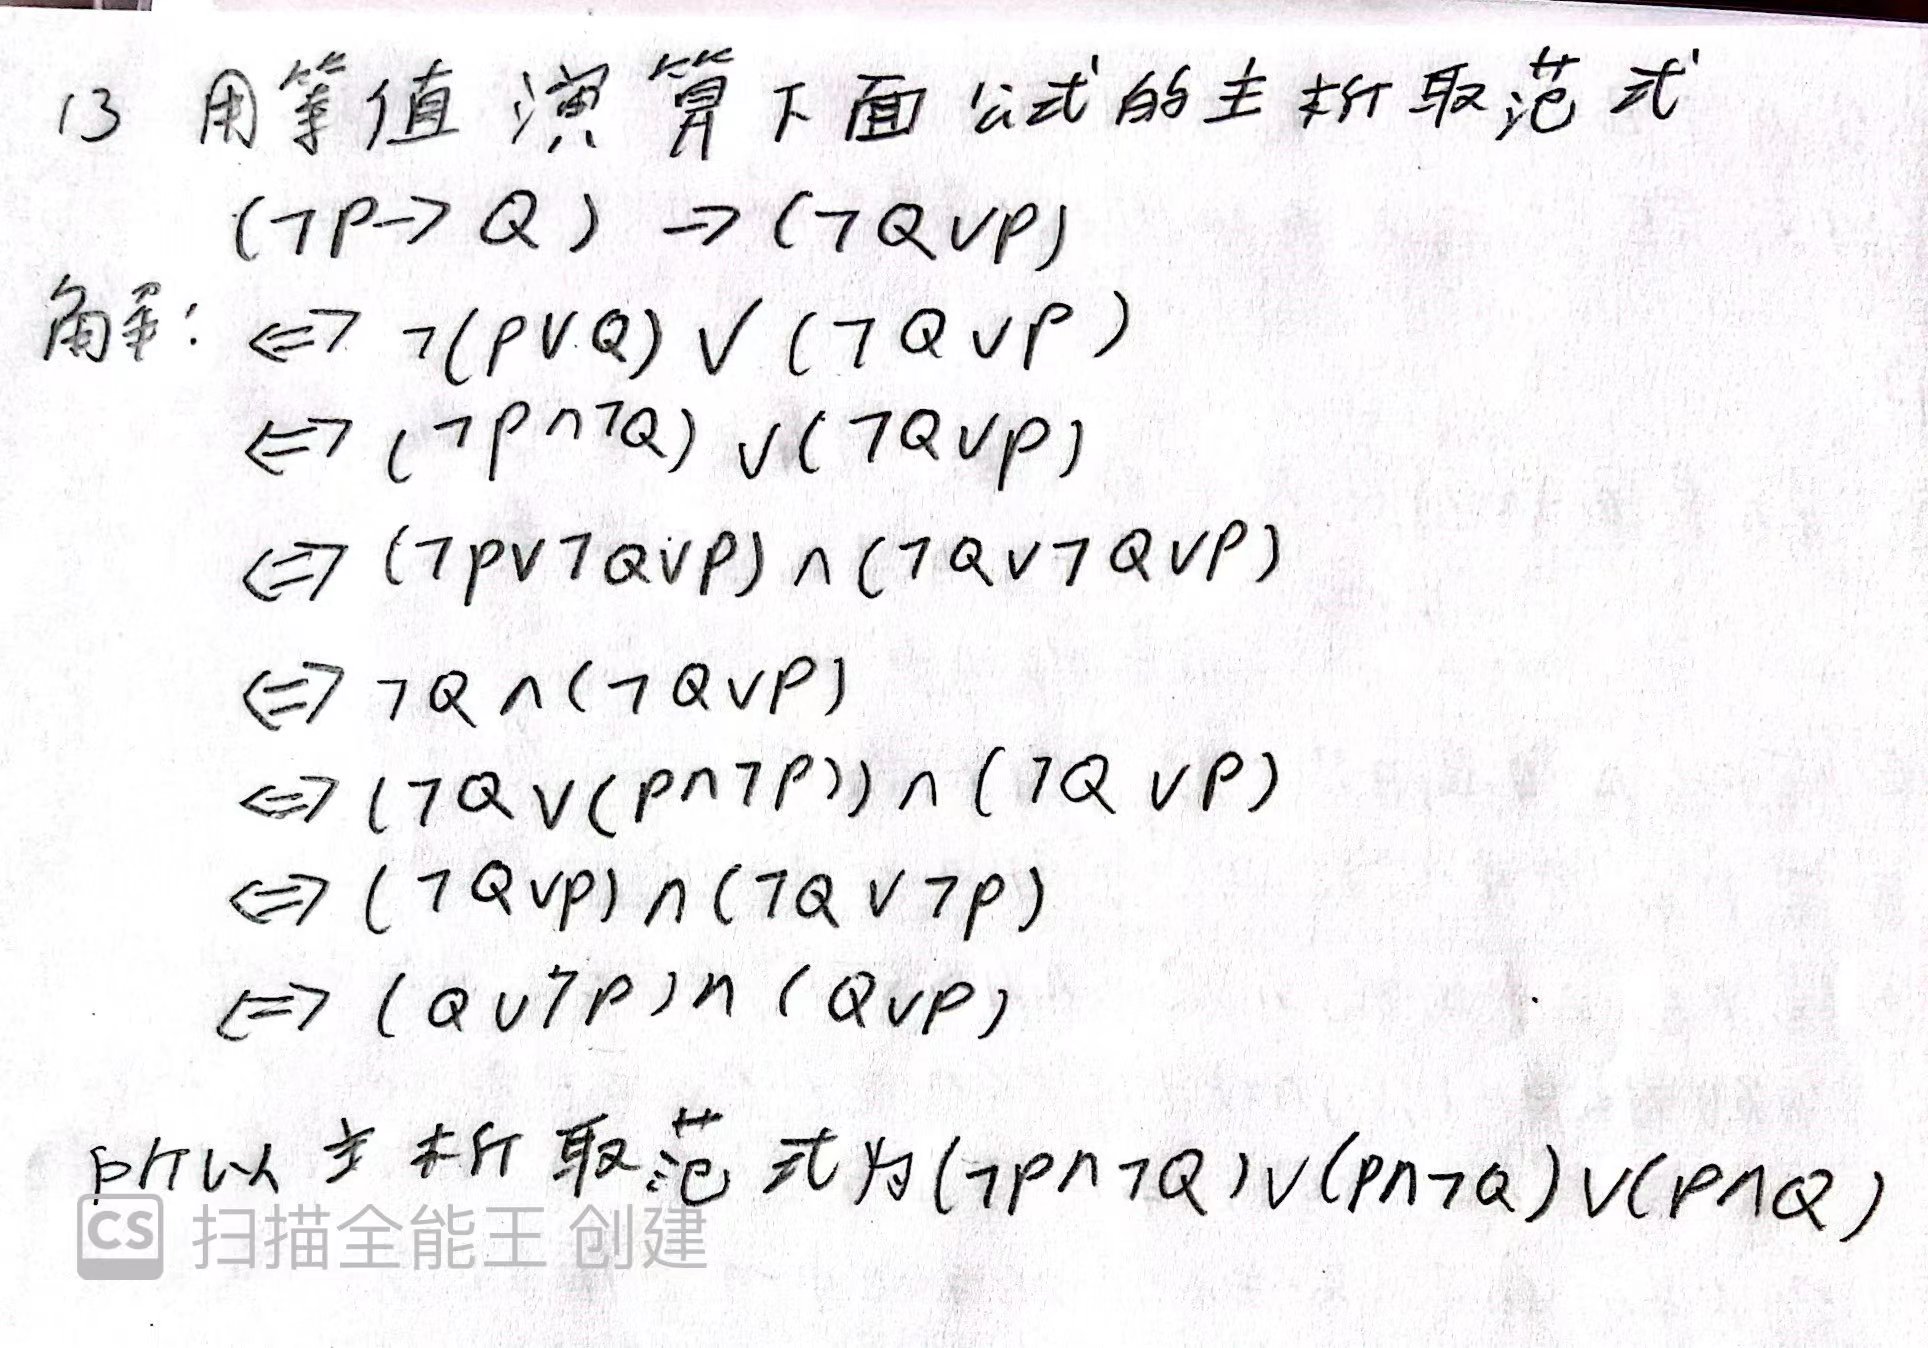 13 用等值演算下面公式的主析取范式
(¬P→Q)→(¬Q∨P)
解: ⇔ ¬(P∨Q)∨(¬Q∨P)
⇔ (¬P∧¬Q)∨(¬Q∨P)
⇔ (¬P∨¬Q∨P)∧(¬Q∨¬Q∨P)
⇔ ¬Q∧(¬Q∨P)
⇔ (¬Q∨(P∧¬P))∧(¬Q∨P)
⇔ (¬Q∨P)∧(¬Q∨¬P)
⇔ (Q∨¬P)∧(Q∨P)
所以主析取范式为(¬P∧¬Q)∨(P∧¬Q)∨(P∧Q)
CS 扫描全能王 创建